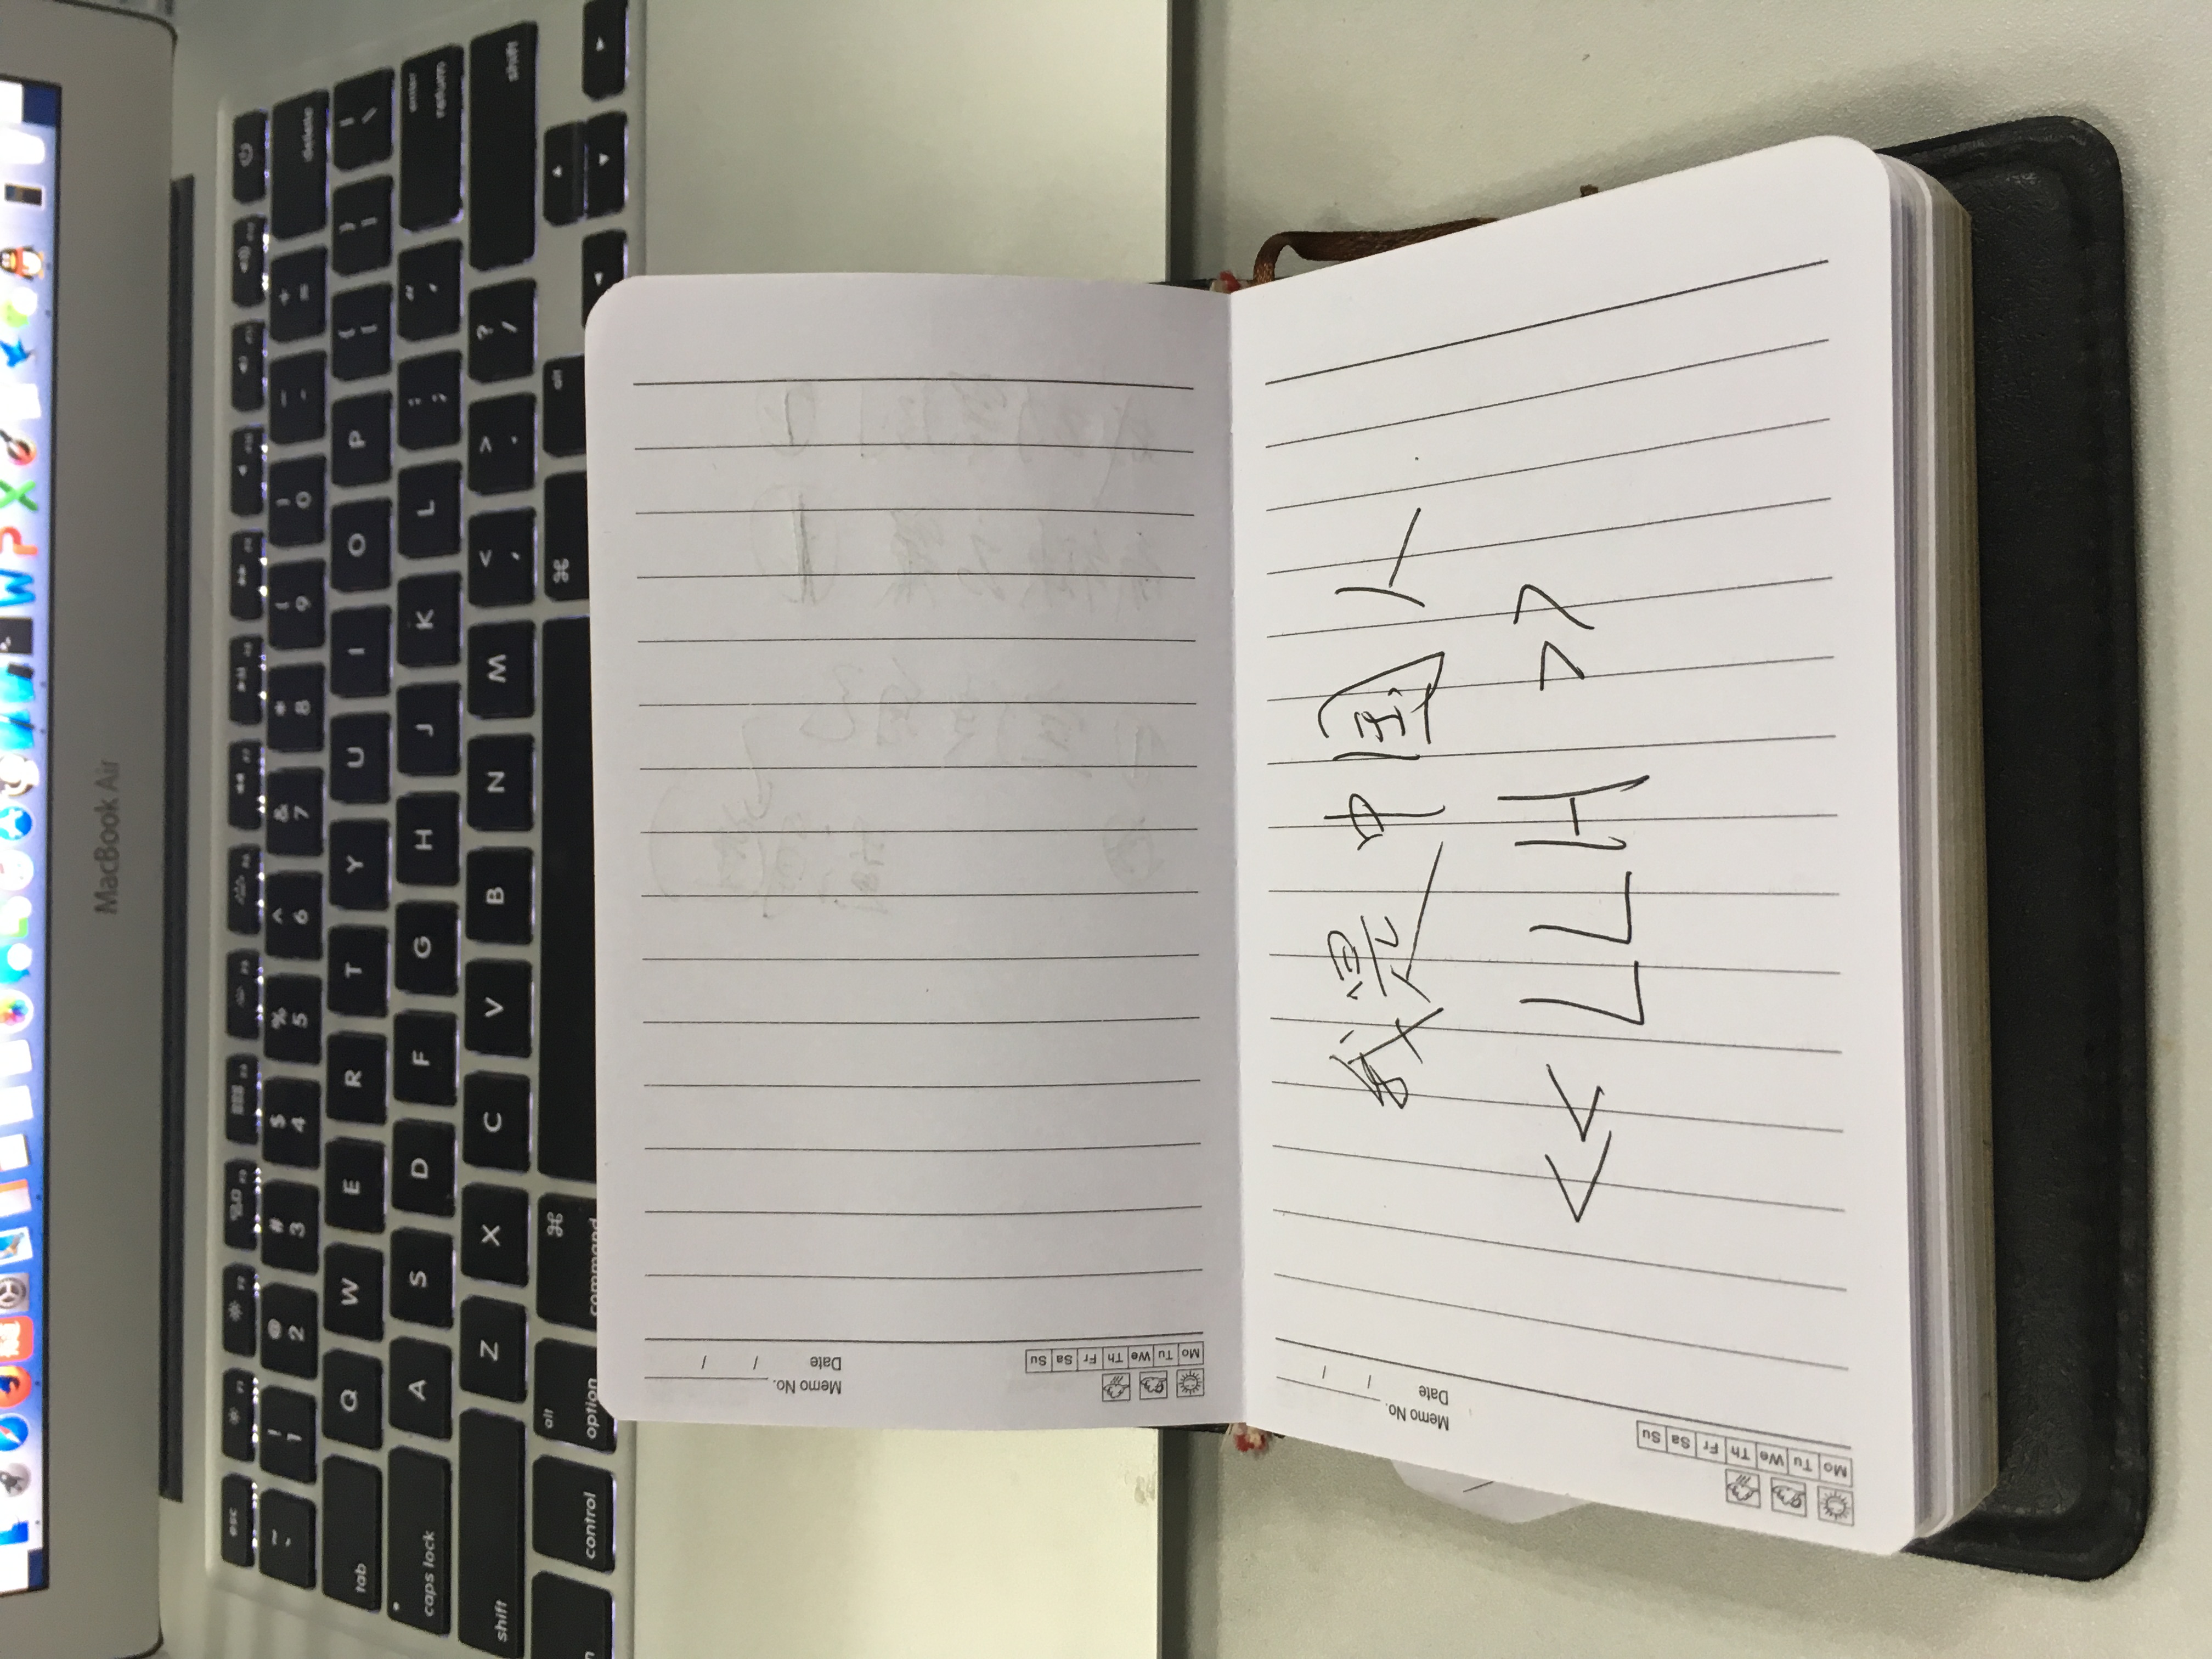 MacBook Air
esc F1 F2 F3 F4 F5 F6 F7
~ ` ! 1 @ 2 # 3 $ 4 % 5 ^ 6 & 7 * 8 ( 9 ) 0 — - + = delete
tab Q W E R T Y U I O P { [ } ] | \
caps lock A S D F G H J K L : ; " ' enter return
shift Z X C V B N M < , > . ? / shift
control alt option ⌘ command ⌘ alt
Memo No.
Date / /
Mo Tu We Th Fr Sa Su
Memo No.
Date / /
Mo Tu We Th Fr Sa Su
我是中国人.
<<LLH >>